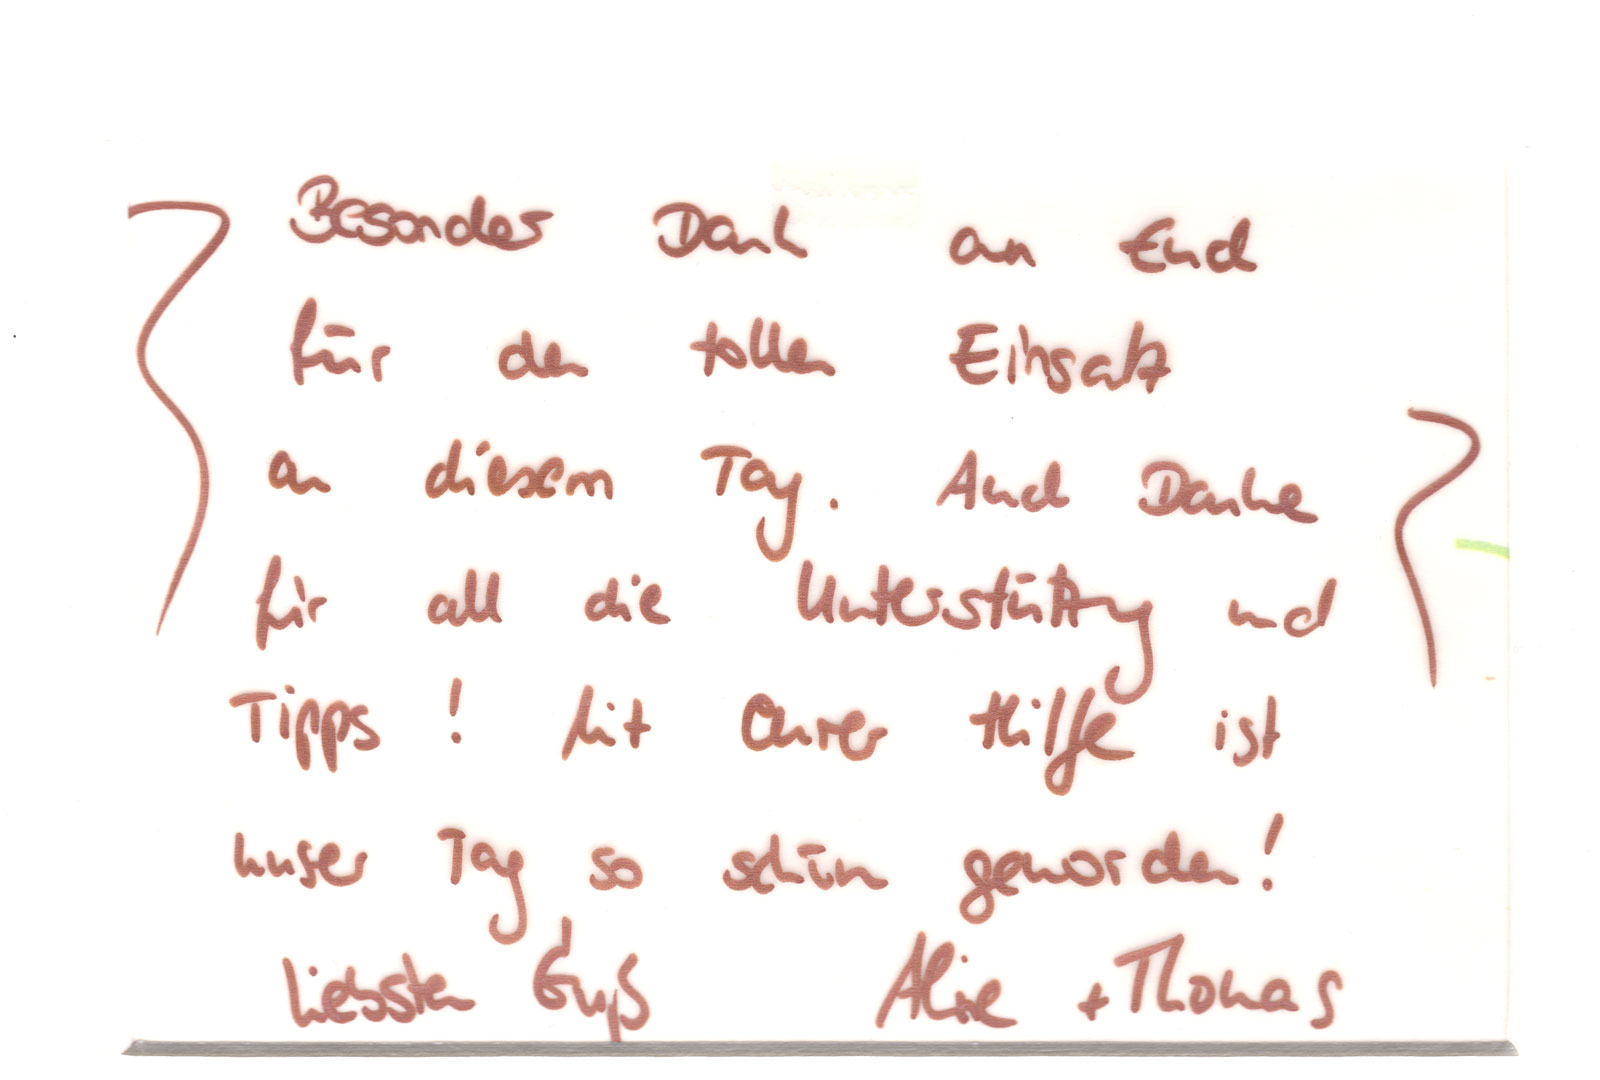 Besonder Dank an Euch
für den tollen Einsatz
an diesem Tag. Auch Danke
für all die Unterstützung und
Tipps! Mit Eurer Hilfe ist
unser Tag so schön geworden!
Liebsten Gruß + Thomas